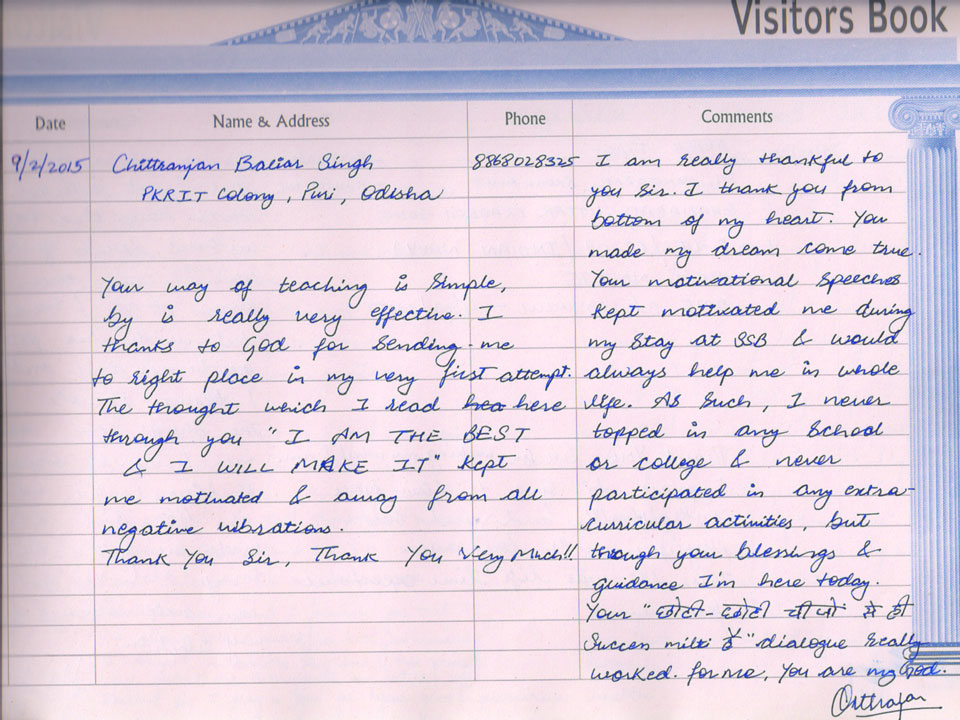 Visitors Book
Date Name & Address Phone Comments
9/2/2015 Chittranjan Baliar Singh 8868028325
PKRIT Colony, Puri, Odisha
I am really thankful to
you Sir. I thank you from
bottom of my heart. You
made my dream come true.
Your motivational speeches
kept motivated me during
my stay at SSB & would
always help me in whole
life. As such, I never
topped in any School
or college & never
participated in any extra-
curricular activities, but
through your blessings &
guidance I'm here today.
Your "छोटी-छोटी चीजों से ही
Success milti है" dialogue really
worked. for me, You are my God.
Your way of teaching is simple,
by is really very effective. I
thanks to God for sending me
to right place in my very first attempt.
The thought which I read here
through you "I AM THE BEST
& I WILL MAKE IT" kept
me motivated & away from all
negative vibrations.
Thank You Sir, Thank You Very Much!!